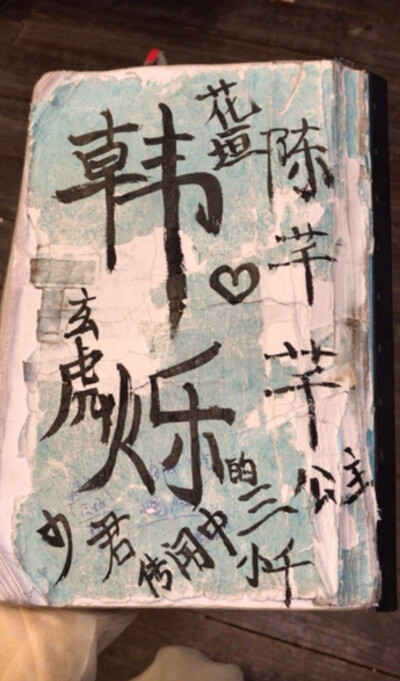 花垣
陈芊芊
公主
韩烁
♡
玄虎
少君
传闻中
的三
小千